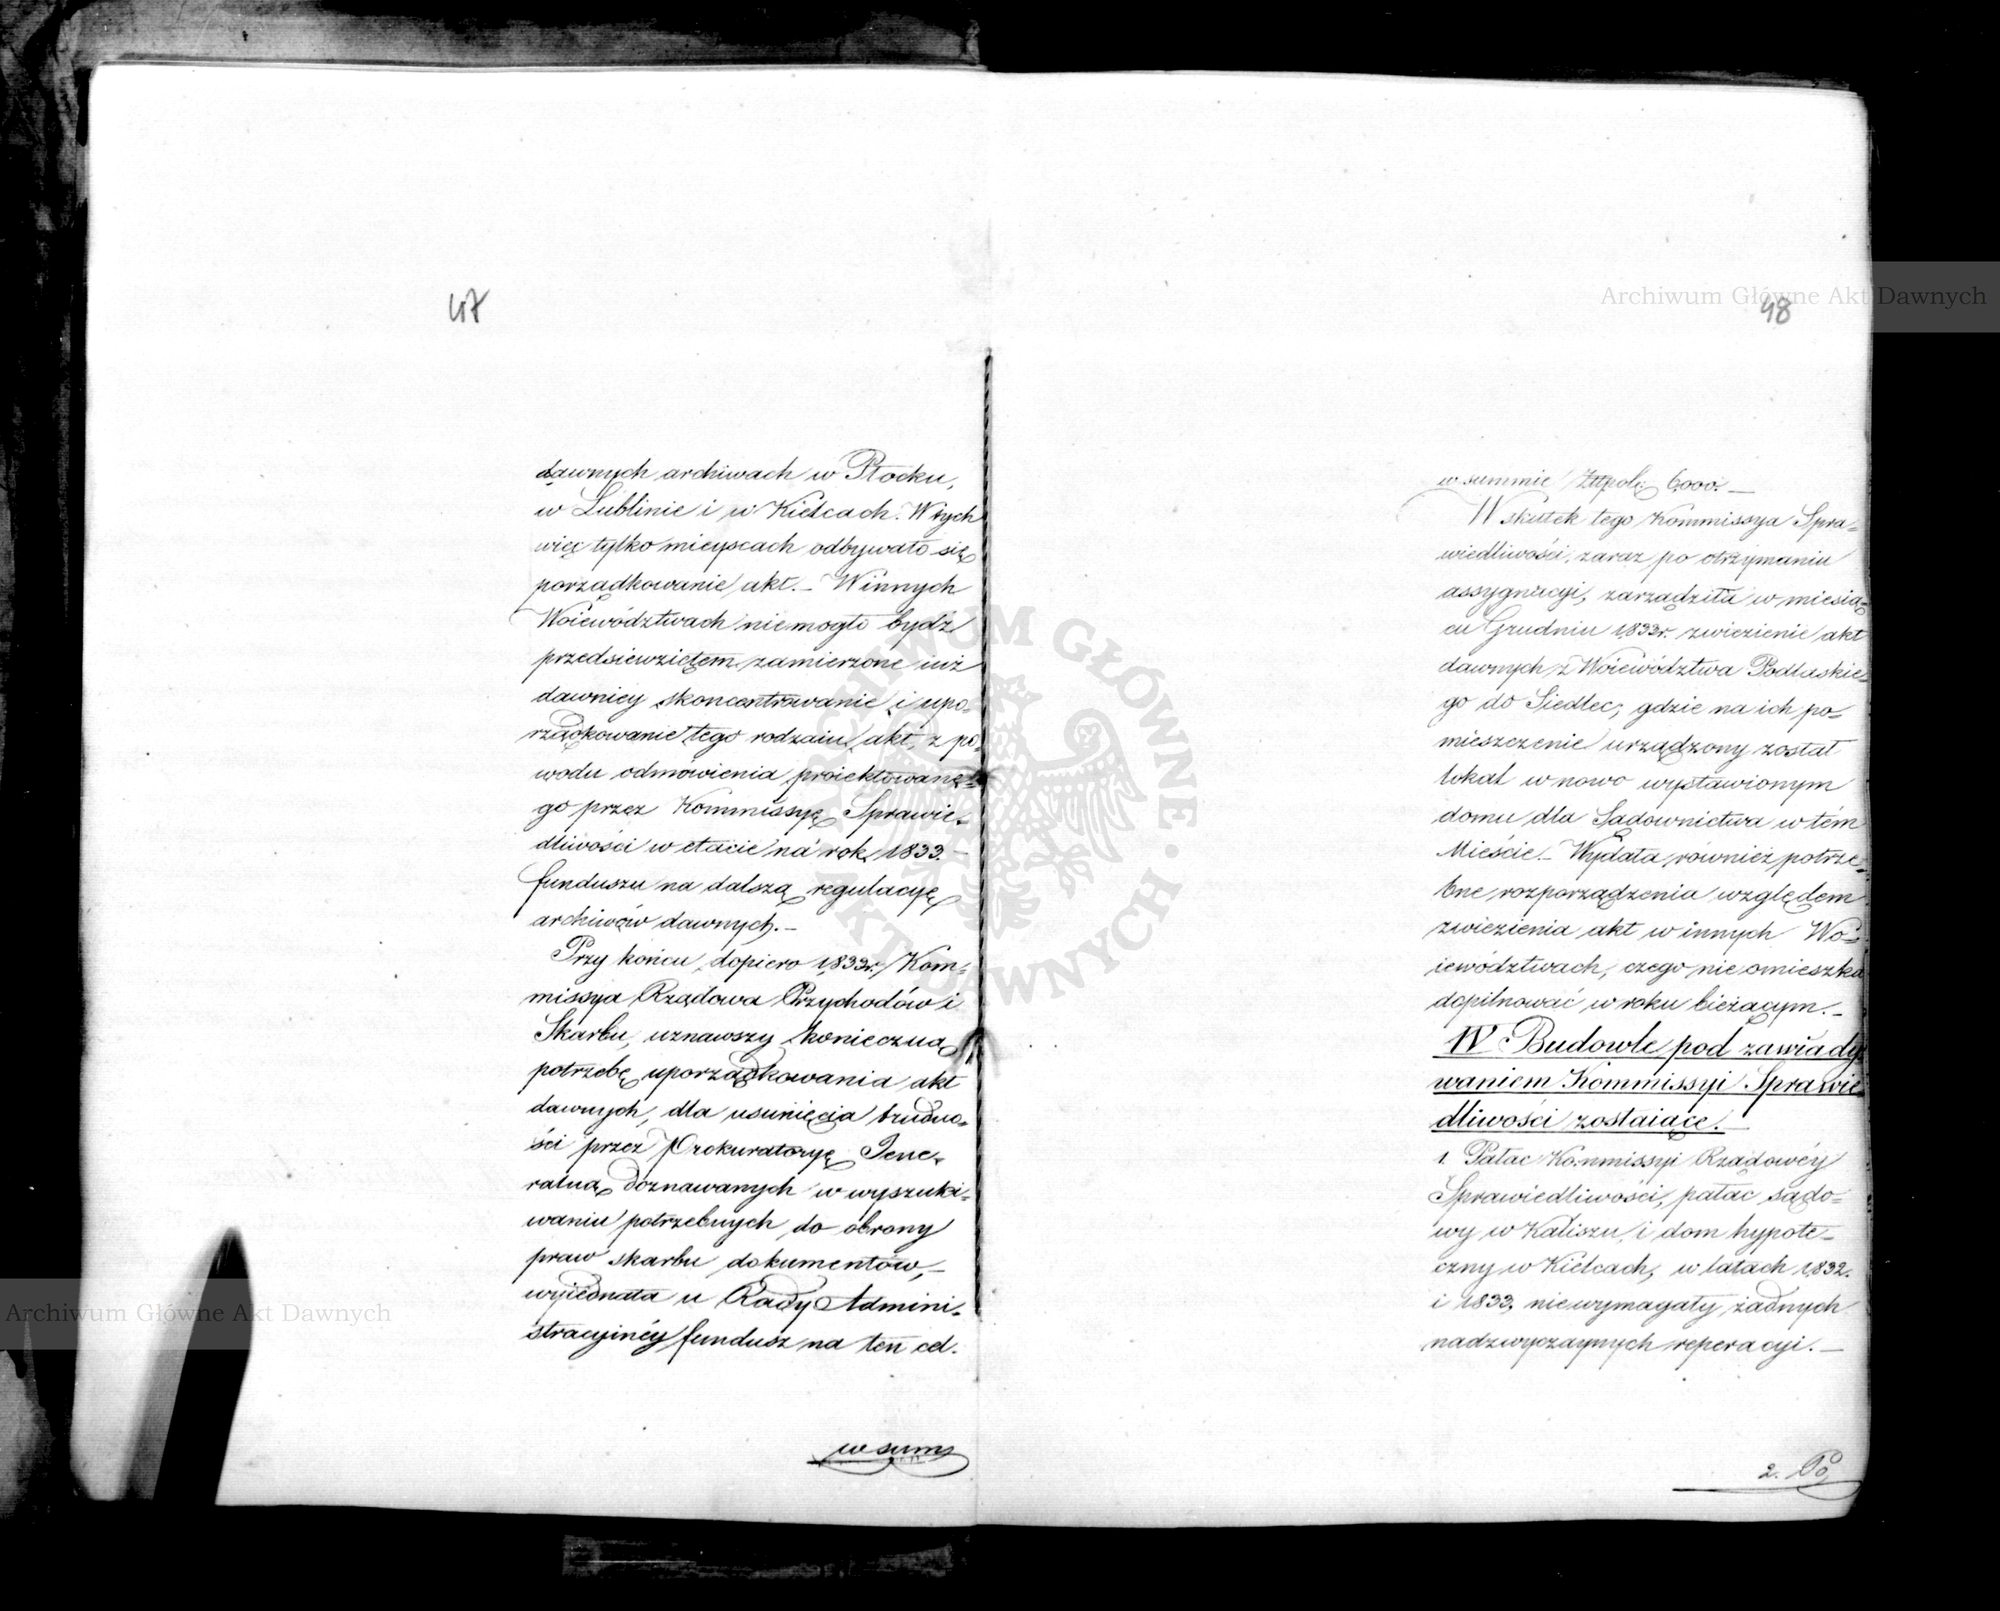 47
dawnych archiwach w Płocku,
w Lublinie i w Kielcach. W tych
więc tylko mieyscach odbywało się
porządkowanie akt. – W innych
Woiewództwach niemogło bydź
przedsięwziętem zamierzone iuż
dawniey skoncentrowanie i upo-
rządkowanie tego rodzaiu akt, z po-
wodu odmówienia proiektowane-
go przez Kommissyę Sprawie-
dliwości w etacie na rok 1833. –
funduszu na dalszą regulacyę
archiwów dawnych. –
Przy końcu dopiero 1833r. Kom-
missya Rządowa Przychodów i
Skarbu, uznawszy konieczną
potrzebę uporządkowania akt
dawnych, dla usunięcia trudno-
ści przez Prokuratoryę Jene-
ralną doznawanych w wyszuki-
waniu potrzebnych do obrony
praw skarbu dokumentów, –
wyiednała u Rady Admini-
stracyinéy fundusz na ten cel.
w sum
48
w summie Złtpol: 6,000. –
W skutek tego Kommissya Spra-
wiedliwości, zaraz po otrzymaniu
assygnacyi, zarządziła w miesią-
cu Grudniu 1833r. zwiezienie akt
dawnych z Woiewództwa Podlaskie-
go do Siedlec, gdzie na ich po-
mieszczenie urządzony został
lokal w nowo wystawionym
domu dla Sądownictwa w tém
Mieście. – Wydała również potrze-
bne rozporządzenia względem
zwiezienia akt w innych Wo-
iewództwach, czego nie omieszka
dopilnować w roku bieżącym. –
IV Budowle pod zawiady-
waniem Kommissyi Sprawie-
dliwości zostaiące. –
1. Pałac Kommissyi Rządowéy
Sprawiedliwości, pałac sądo-
wy w Kaliszu, i dom hypote-
czny w Kielcach, w latach 1832.
i 1833, niewymagały żadnych
nadzwyczaynych reperacyi. –
2. Po
Archiwum Główne Akt Dawnych
Archiwum Główne Akt Dawnych
ARCHIWUM GŁÓWNE · AKT DAWNYCH ·